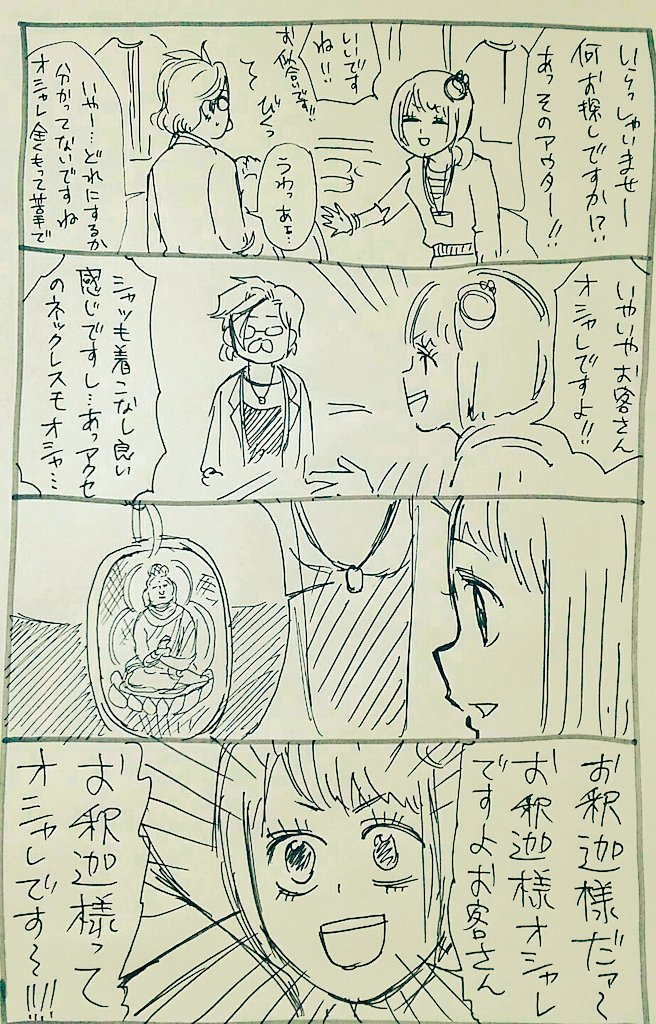 いらっしゃいませー
何お探しですか!?
あっそのアウター!!
いいです
ねー!!
お似合いです!!
びくっ
うわっあ…
いやー…どれにするか
分かってないですね
オシャレ全くもって苦手で
いやいやお客さん
オシャレですよ!!
シャツも着こなし良い
感じですし…あっアクセ
のネックレスモオシャ…
お釈迦様だァ〜
お釈迦様オシャレ
ですよお客さん
お釈迦様って
オシャレです〜!!!!